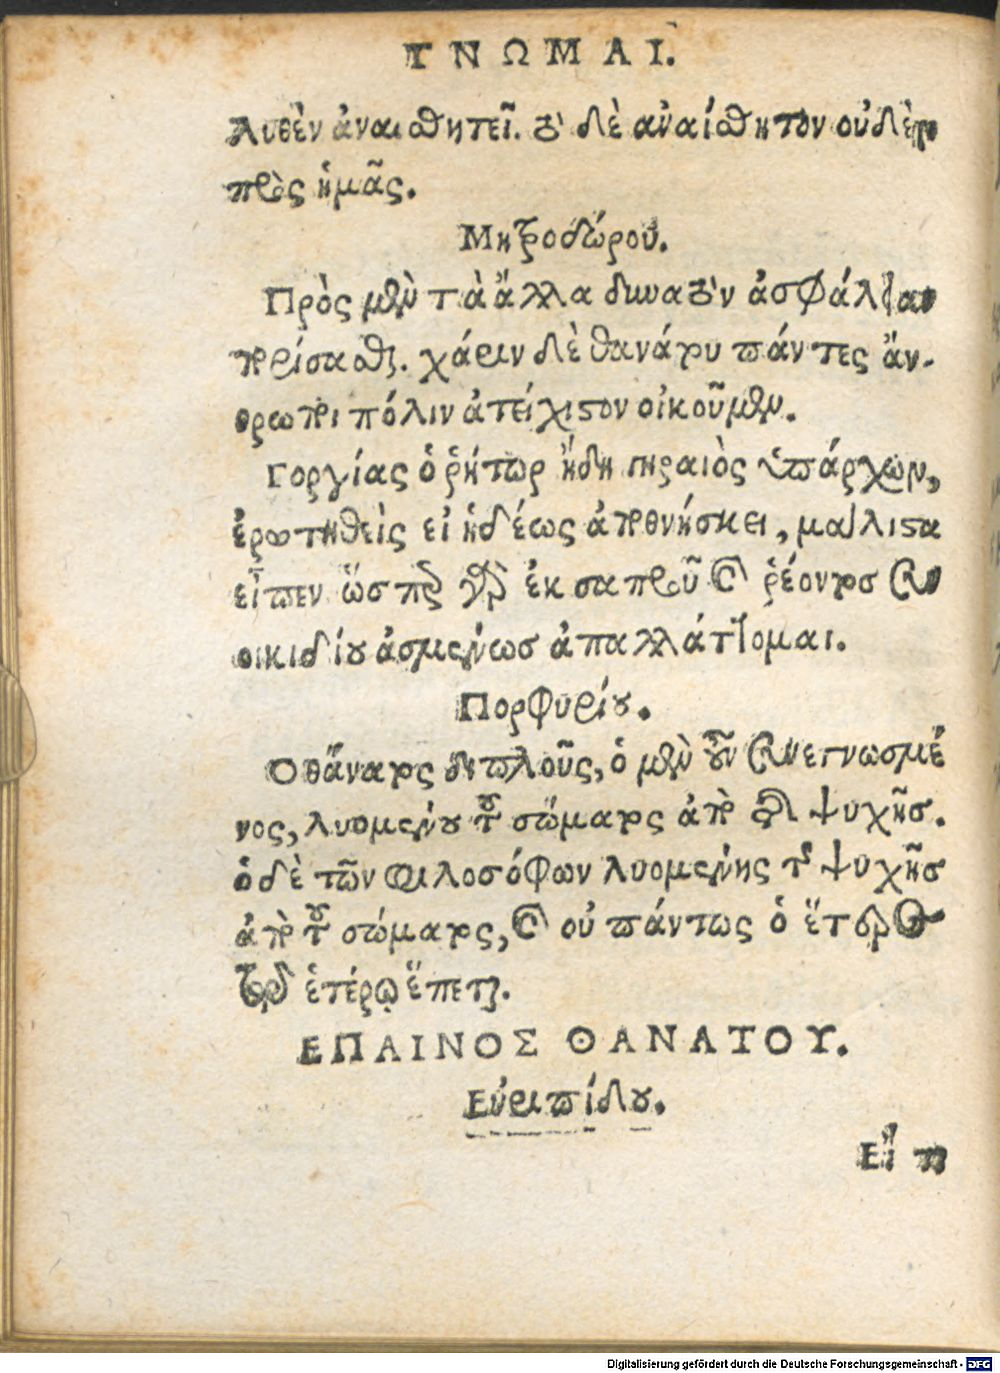 ΓΝΩΜΑΙ.
λυθὲν ἀναισθητεῖ. τὸ δὲ ἀναίσθητον οὐδὲν
πρὸς ἡμᾶς.
Μητροδώρου.
Πρὸς μὲν τὰ ἄλλα δυνατὸν ἀσφάλειαν
πορίσασθαι. χάριν δὲ θανάτου πάντες ἄν-
θρωποι πόλιν ἀτείχιστον οἰκοῦμεν.
Γοργίας ὁ ῥήτωρ ἤδη γηραιὸς ὑπάρχων,
ἐρωτηθεὶς εἰ ἡδέως ἀποθνήσκει, μάλιστα
εἶπεν ὥσπερ γὰρ ἐκ σαπροῦ καὶ ῥέοντος συν
οικιδίου ἀσμένως ἀπαλλάττομαι.
Πορφυρίου.
Ο θάνατος διπλοῦς, ὁ μὲν οὖν συνεγνωσμέ
νος, λυομένου τοῦ σώματος ἀπὸ τῆς ψυχῆς.
ὁ δὲ τῶν φιλοσόφων λυομένης τῆς ψυχῆς
ἀπὸ τοῦ σώματος, καὶ οὐ πάντως ὁ ἕτερος
τῷ ἑτέρῳ ἕπεται.
ΕΠΑΙΝΟΣ ΘΑΝΑΤΟΥ.
Εὐριπίδου.
Εἴ π
Digitalisierung gefördert durch die Deutsche Forschungsgemeinschaft - DFG